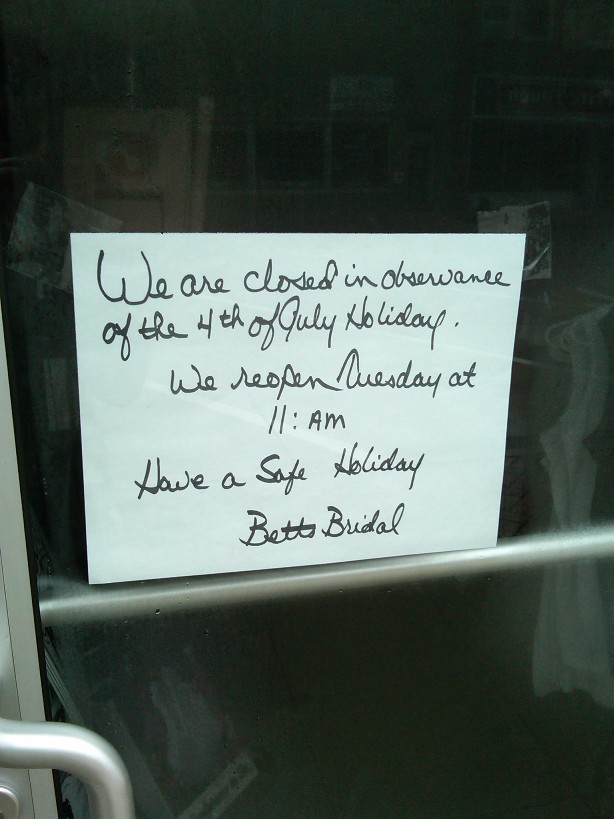 We are closed in observance
of the 4th of July Holiday.
We reopen Tuesday at
11: AM
Have a Safe Holiday
Betts Bridal